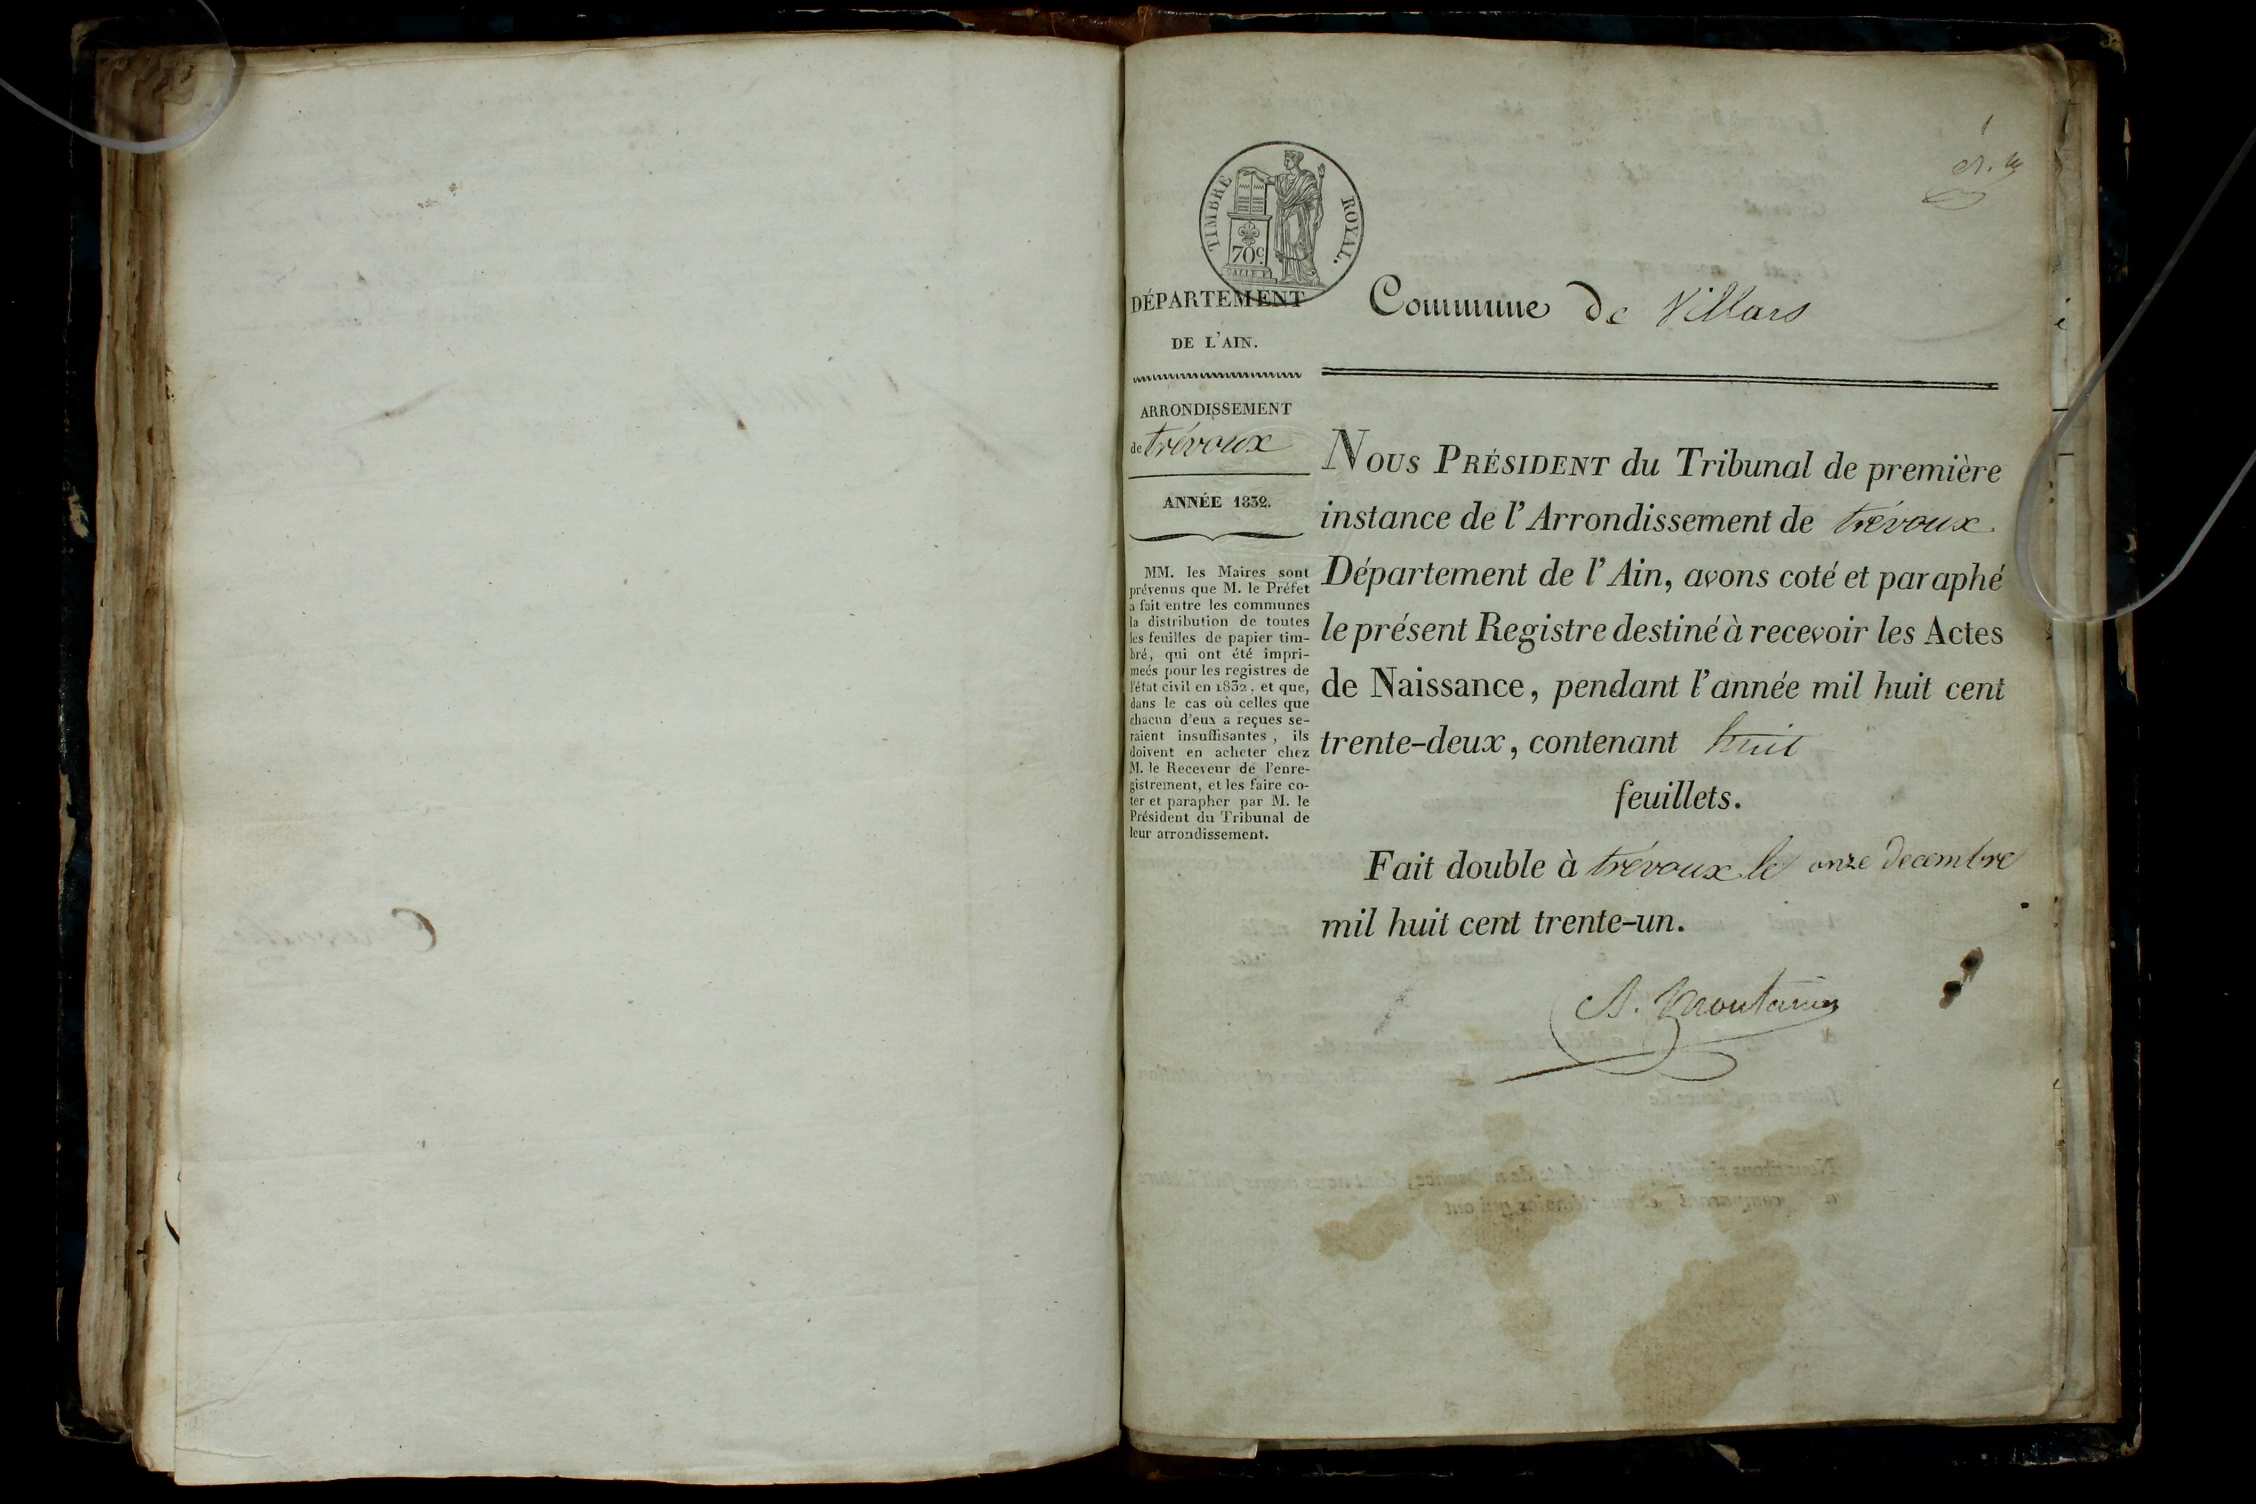 1
TIMBRE ROYAL.
70c
DÉPARTEMENT
DE L'AIN.
Commune de Villars
ARRONDISSEMENT
de trévoux
ANNÉE 1832.
MM. les Maires sont
prévenus que M. le Préfet
a fait entre les communes
la distribution de toutes
les feuilles de papier tim-
bré, qui ont été impri-
meés pour les registres de
l'état civil en 1832, et que,
dans le cas où celles que
chacun d'eux a reçues se-
raient insuffisantes, ils
doivent en acheter chez
M. le Receveur de l'enre-
gistrement, et les faire co-
ter et parapher par M. le
Président du Tribunal de
leur arrondissement.
NOUS PRÉSIDENT du Tribunal de première
instance de l'Arrondissement de trévoux.
Département de l'Ain, avons coté et paraphé
le présent Registre destiné à recevoir les Actes
de Naissance, pendant l'année mil huit cent
trente-deux, contenant huit
feuillets.
Fait double à trévoux le onze decembre
mil huit cent trente-un.